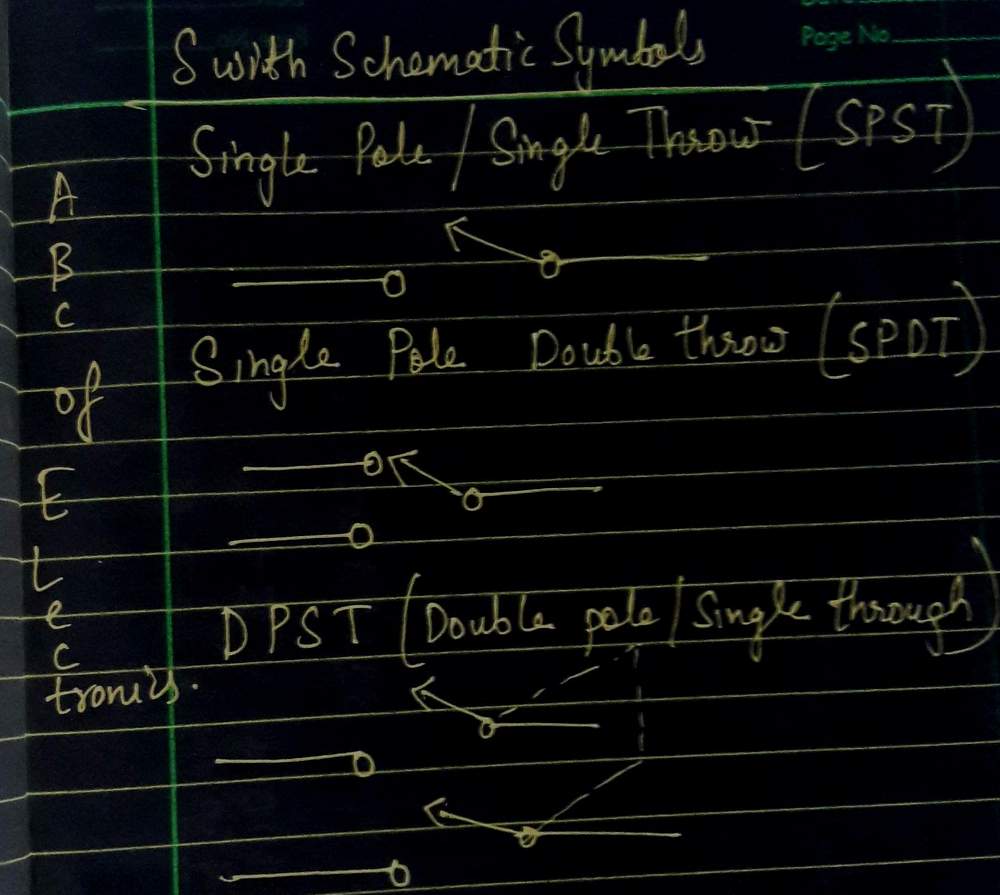 Page No.
Swith Schematic Symbols
Single Pole / Single Throw (SPST)
Single Pole Double throw (SPDT)
DPST (Double pole / Single through)
A
B
C
of
E
L
e
c
tronics.